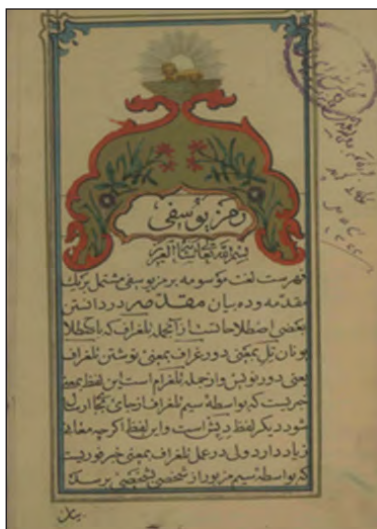 رمز یوسفی
بسم الله تعالی شانه العزیز
فهرست لغت موسومه برمز یوسفی مشتمل بریک
مقدمه وده بیان مقدمه در دانستن
بعضی اصطلاحاتست ازآنجمله تلغراف که باصطلاح
یونان تل بمعنی دور غراف بمعنی نوشتن تلغراف
یعنی دورنویس وازجمله تلغرام است این لفظ بمعنی
خبریست که بواسطه سیم تلغراف ازجائی بجائی
شود دیگر لفظ است واین لفظ اگرچه معانی
زیاد دارد ولی در عمل تلغراف بمعنی خبر فوریست
که بواسطه سیم مزبور از شخصی بشخصی برسد